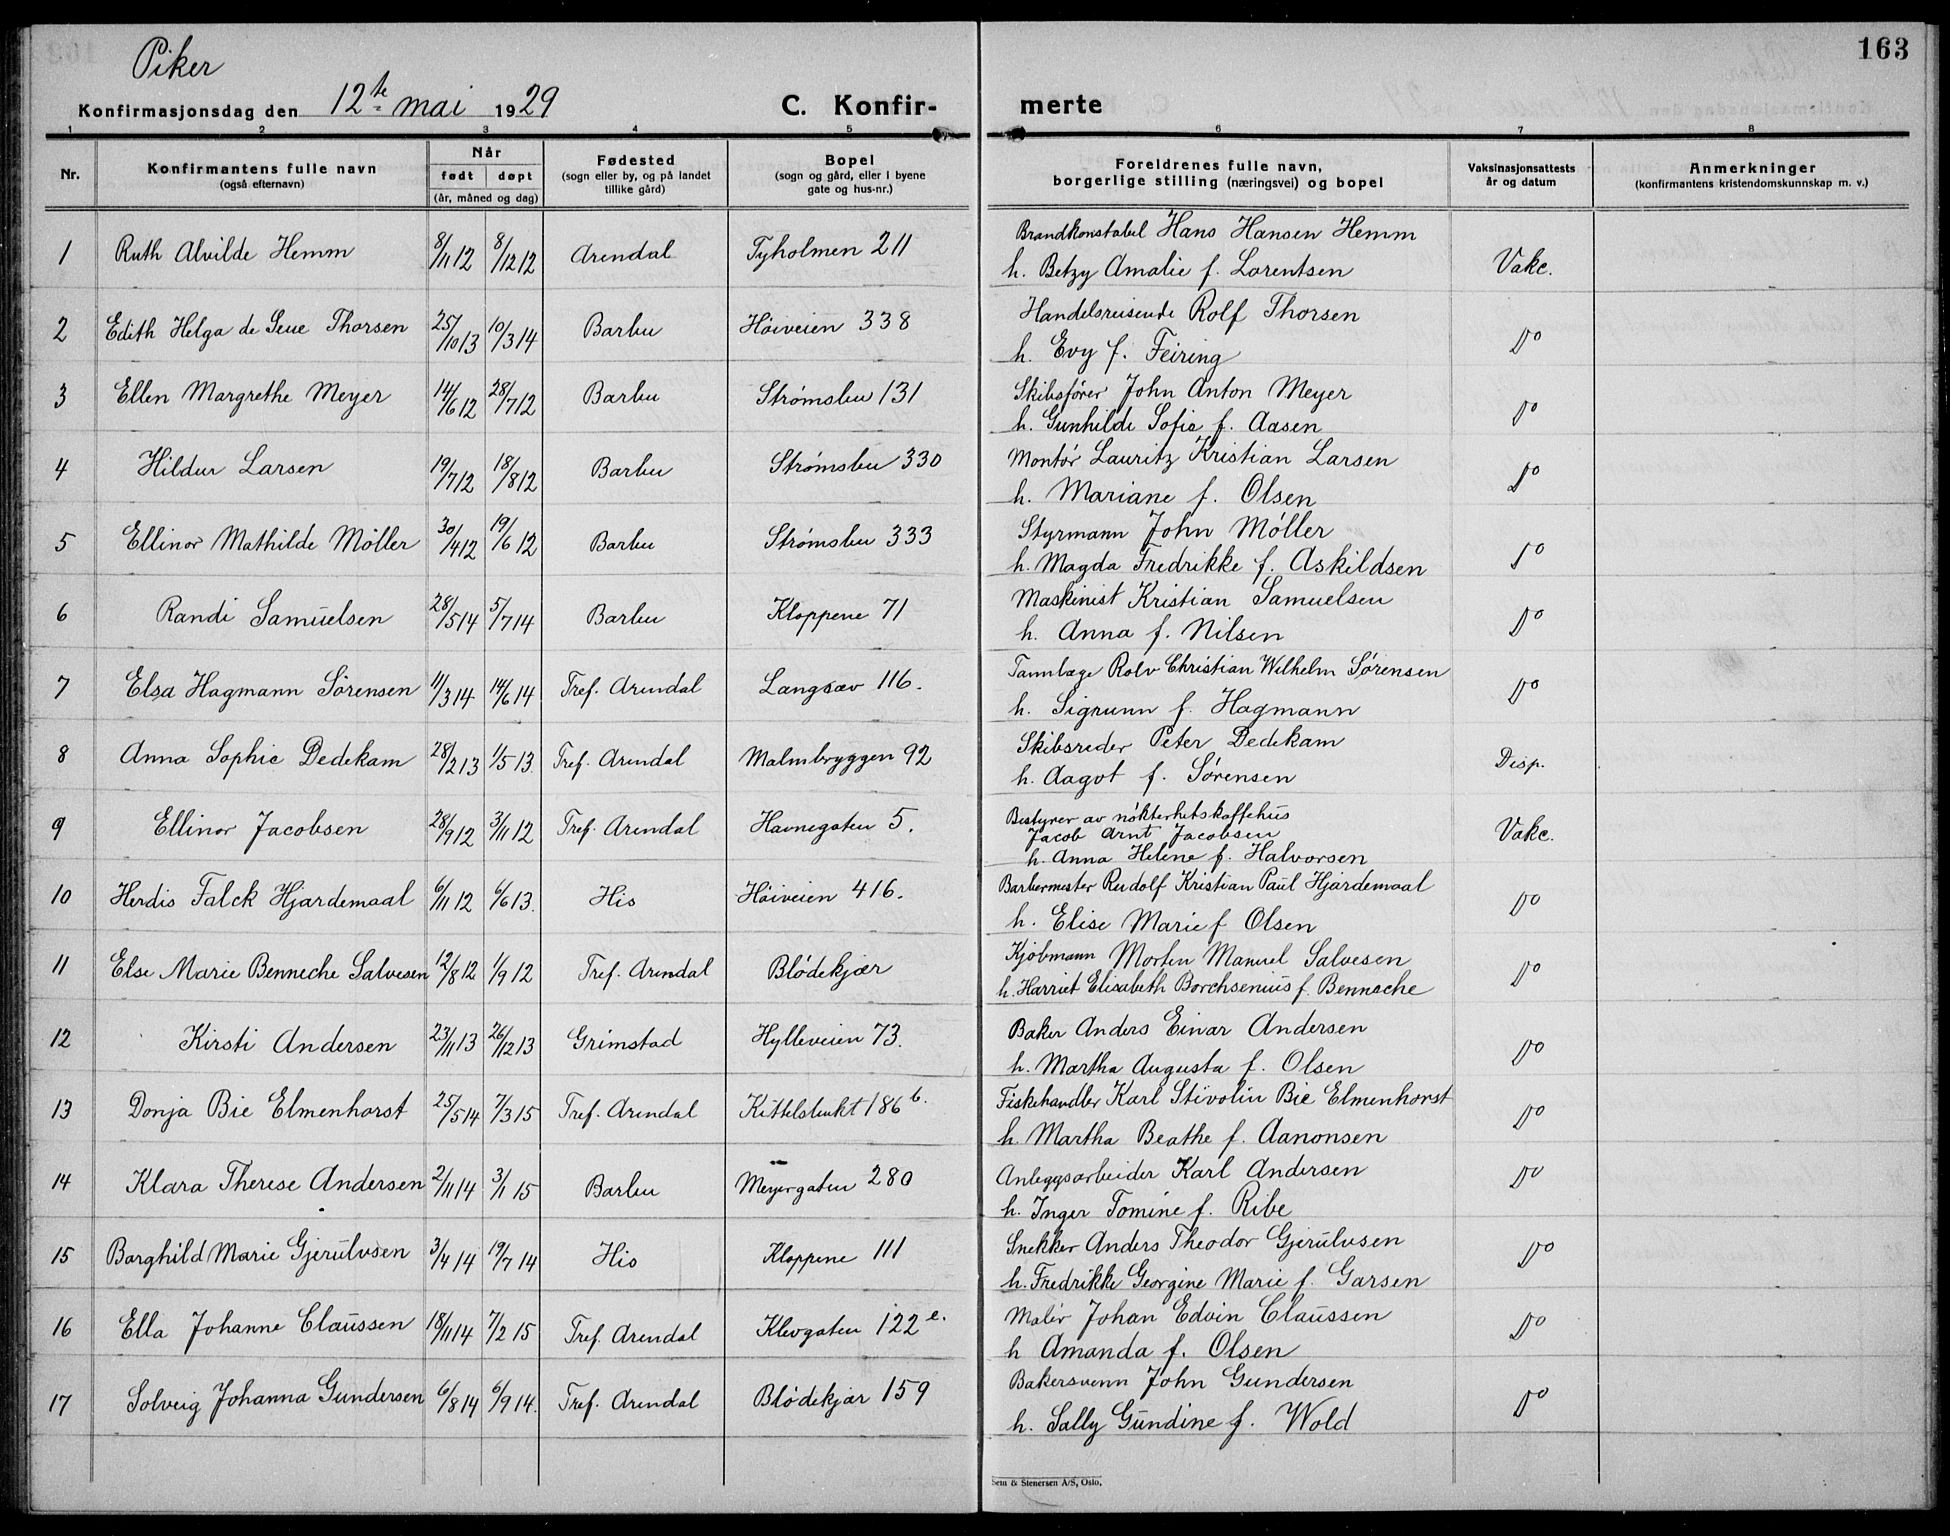 163
Piker
Konfirmasjonsdag den 12te mai 1929 C. Konfir- merte
1 2 3 4 5 6 7 8
Nr. Konfirmantens fulle navn (også efternavn) Når født døpt (år, måned og dag) Fødested (sogn eller by, og på landet tillike gård) Bopel (sogn og gård, eller i byene gate og hus-nr.) Foreldrenes fulle navn, borgerlige stilling (næringsvei) og bopel Vaksinasjonsattests år og datum Anmerkninger (konfirmantens kristendomskunnskap m. v.)
1 Ruth Alvilde Hemm 8/11 12 8/12 12 Arendal Tyholmen 211 Brandkonstabel Hans Hansen Hemm
h. Betzy Amalie f. Lorentsen Vakc.
2 Edith Helga de Seue Thorsen 25/10 13 10/3 14 Barbu Høiveien 338 Handelsreisende Rolf Thorsen
h. Evy f. Feiring Do
3 Ellen Margrethe Meyer 14/6 12 28/7 12 Barbu Strømsbu 131 Skibsfører John Anton Meyer
h. Gunhilde Sofie f. Aasen Do
4 Hildur Larsen 19/7 12 18/8 12 Barbu Strømsbu 330 Montør Lauritz Kristian Larsen
h. Mariane f. Olsen Do
5 Ellinor Mathilde Møller 30/4 12 19/6 12 Barbu Strømsbu 333 Styrmann John Møller
h. Magda Fredrikke f. Askildsen Do
6 Randi Samuelsen 28/5 14 5/7 14 Barbu Kloppene 71 Maskinist Kristian Samuelsen
h. Anna f. Nilsen Do
7 Elsa Hagmann Sørensen 11/3 14 14/6 14 Tref. Arendal Langsæv 116. Tannlæge Rolv Christian Wilhelm Sørensen
h. Sigrunn f. Hagmann Do
8 Anna Sophie Dedekam 28/2 13 1/5 13. Tref. Arendal Malmbryggen 92 Skibsreder Peter Dedekam
h. Aagot f. Sørensen Disp.
9 Ellinor Jacobsen 28/9 12 3/11 12 Tref. Arendal Havnegaten 5. Bestyrer av nøkterhetskaffehus
Jacob Arnt Jacobsen
h. Anna Helene f. Halvorsen Vakc.
10 Herdis Falck Hjardemaal 6/11 12 6/6 13. His Høiveien 416. Barbermester Rudolf Kristian Paul Hjardemaal
h. Elise Marie f Olsen Do
11 Else Marie Benneche Salvesen 12/8 12 1/9 12 Tref. Arendal Blødekjær Kjøbmann Morten Manuel Salvesen
h. Harriet Elisabeth Borchsenius f. Benneche Do
12 Kirsti Andersen 23/11 13 26/12 13 Grimstad Hylleveien 73. Baker Anders Einar Andersen
h. Martha Augusta f. Olsen Do
13 Donja Bie Elmenhorst 25/5 14 7/3 15 Tref. Arendal Kittelsbukt 186 b. Fiskehandler Karl Stivolin Bie Elmenhorst
h. Martha Beathe f. Aanonsen Do
14 Klara Therese Andersen 2/11 14 3/1 15 Barbu Meyergaten 280 Anleggsarbeider Karl Andersen
h. Inger Tomine f. Ribe Do
15 Borghild Marie Gjerulvsen 3/4 14 19/7 14 His Kloppene 111 Snekker Anders Theodor Gjerulvsen
h. Fredrikke Georgine Marie f. Garsen Do
16 Ella Johanne Claussen 18/11 14 7/2 15 Tref. Arendal Klevgaten 122 e. Maler Johan Edvin Claussen
h Amanda f. Olsen Do
17 Solveig Johanna Gundersen 6/8 14 6/9 14. Tref. Arendal Blødekjær 159 Bakersvenn John Gundersen
h. Sally Gundine f. Wold Do
Sem & Stenersen A/S, Oslo.